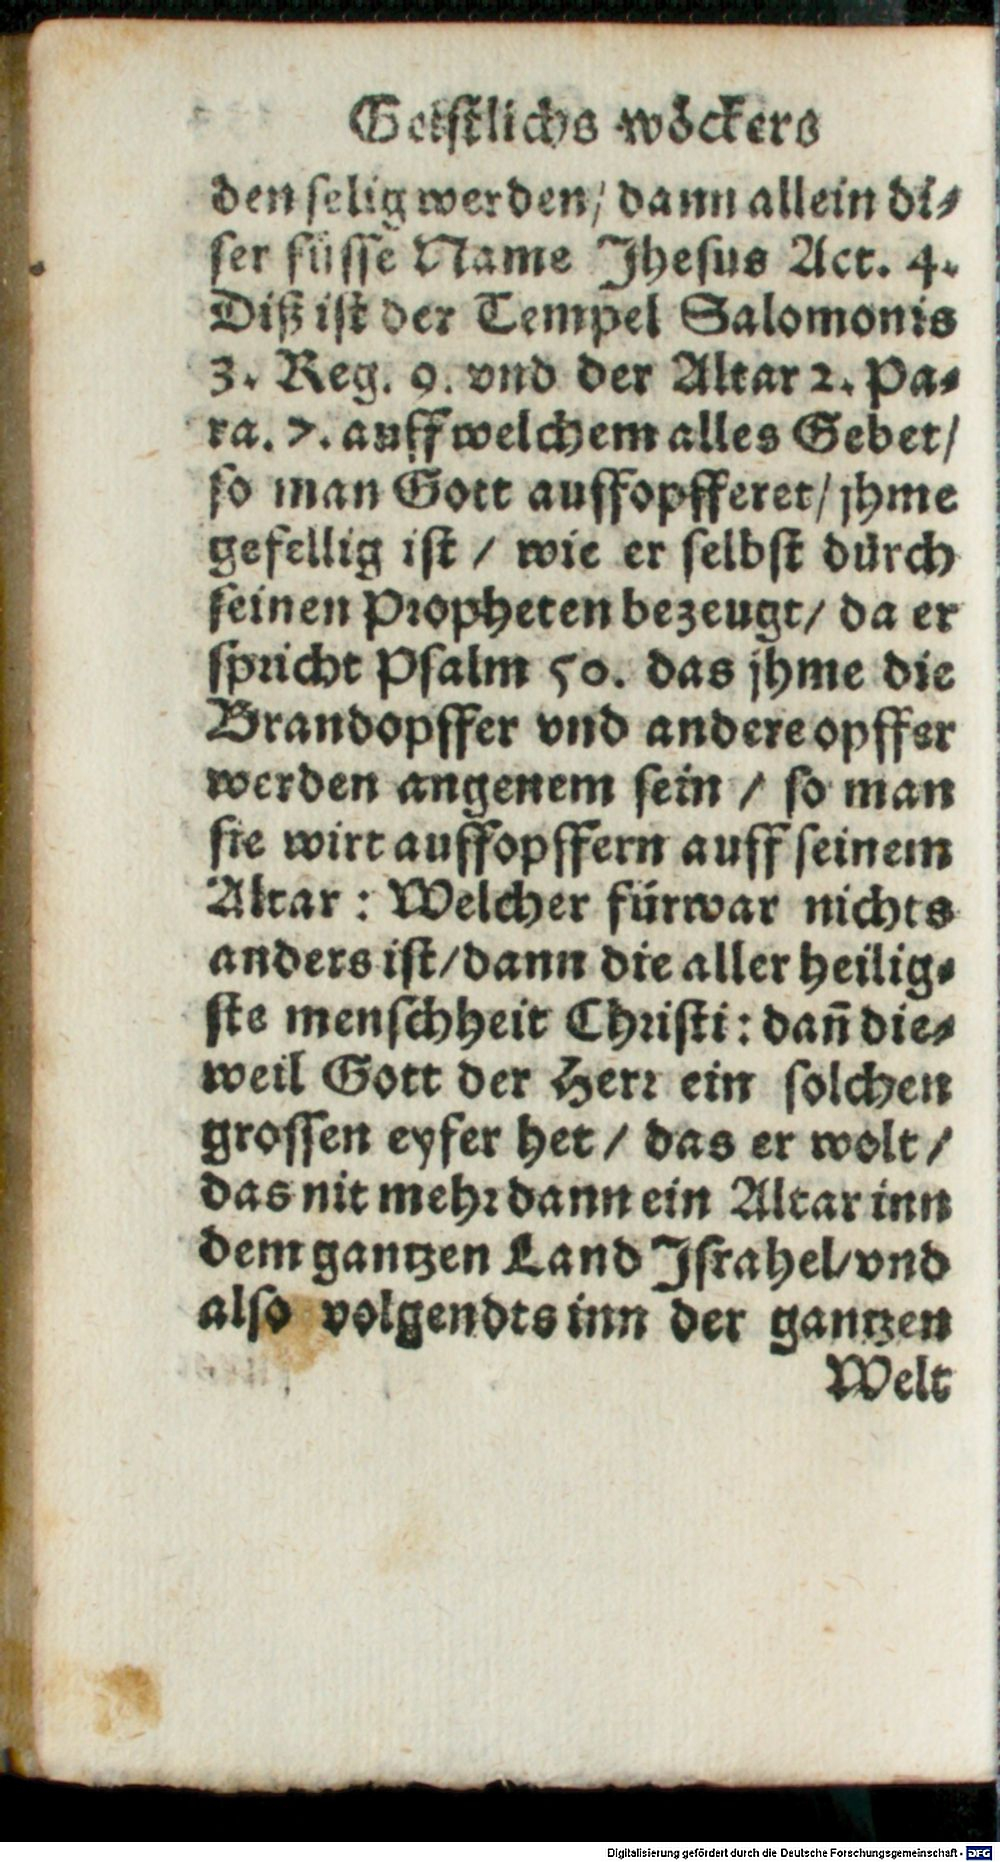 Geistlichs wöckers
den selig werden/ dann allein di-
ser süsse Name Jhesus Act. 4.
Diß ist der Tempel Salomonis
3. Reg. 9. vnd der Altar 2. Pa-
ra. 7. auff welchem alles Gebet/
so man Gott auffopfferet/ jhme
gefellig ist / wie er selbst dürch
seinen Propheten bezeugt/ da er
spricht Psalm 50. das jhme die
Brandopffer vnd andere opffer
werden angenem sein / so man
sie wirt auffopffern auff seinem
Altar : Welcher fürwar nichts
anders ist/ dann die aller heilig-
ste menschheit Christi : dañ die-
weil Gott der Herr ein solchen
grossen eyfer het / das er wolt /
das nit mehr dann ein Altar inn
dem gantzen Land Israhel/ vnd
also volgendts inn der gantzen
Welt
Digitalisierung gefördert durch die Deutsche Forschungsgemeinschaft - DFG